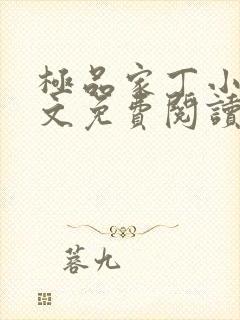 極品家丁小
文免費閱讀
蓉九